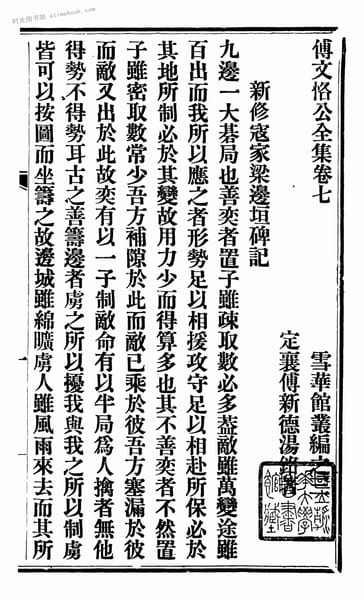 时光图书馆 · xtimebook.com
傅文恪公全集卷七
雪華館叢編之
定襄傅新德湯銘著
新修寇家梁邊垣碑記
九邊一大碁局也善奕者置子雖疎取數必多葢敵雖萬變途雖
百出而我所以應之者形勢足以相援攻守足以相赴所保必於
其地所制必於其變故用力少而得算多也其不善奕者不然置
子雖密取數常少吾方補隙於此而敵已乘於彼吾方塞漏於彼
而敵又出於此故奕有以一子制敵命有以半局爲人擒者無他
得勢不得勢耳古之善籌邊者虜之所以擾我與我之所以制虜
皆可以按圖而坐籌之故邊城雖綿曠虜人雖風雨來去而其所
一